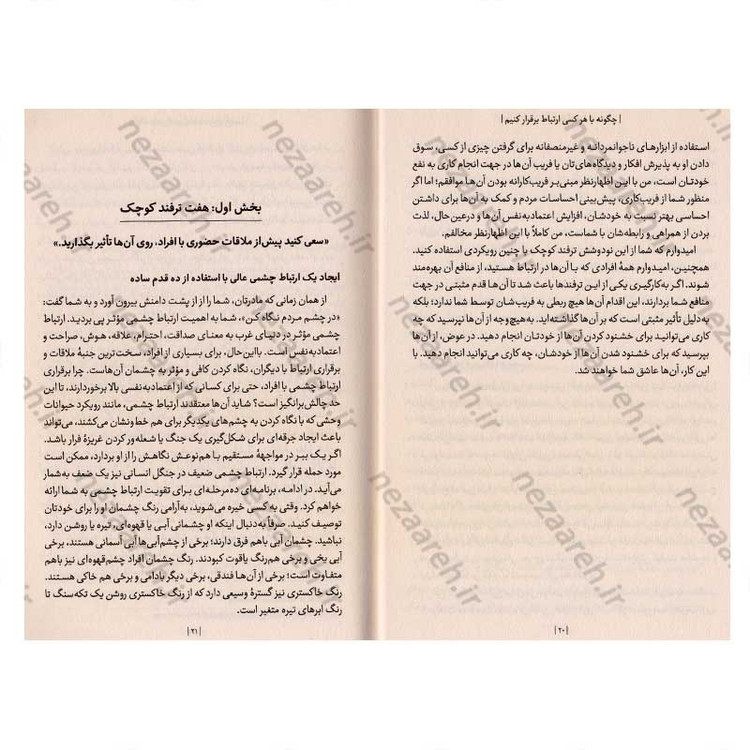 | چگونه با هر کسی ارتباط برقرار کنیم |
استفاده از ابزارهای ناجوانمردانه و غیرمنصفانه برای گرفتن چیزی از کسی، سوق
دادن او به پذیرش افکار و دیدگاه‌های‌تان یا فریب آن‌ها در جهت انجام کاری به نفع
خودتان است، من با این اظهارنظر مبنی‌بر فریب‌کارانه بودن آن‌ها موافقم؛ اما اگر
منظور شما از فریب‌کاری، پیش‌بینی احساسات مردم و کمک به آن‌ها برای داشتن
احساسی بهتر نسبت به خودشان، افزایش اعتمادبه‌نفس آن‌ها و درعین‌حال، لذت
بردن از همراهی و رابطه‌شان با شماست، من کاملاً با این اظهارنظر مخالفم.
امیدوارم که شما از این نودوشش ترفند کوچک با چنین رویکردی استفاده کنید.
همچنین، امیدوارم همهٔ افرادی که با آن‌ها در ارتباط هستید، از منافع آن بهره‌مند
شوند. اگر به‌کارگیری یکی از این ترفندها باعث شد تا آن‌ها قدم مثبتی در جهت
منافع شما بردارند، این اقدام آن‌ها هیچ ربطی به فریب‌شان توسط شما ندارد؛ بلکه
به‌دلیل تأثیر مثبتی است که بر آن‌ها گذاشته‌اید. به‌هیچ‌وجه از آن‌ها نپرسید که چه
کاری می‌توانید برای خشنود کردن آن‌ها از خودتان انجام دهید. در عوض، از آن‌ها
بپرسید که برای خشنود شدن آن‌ها از خودشان، چه کاری می‌توانید انجام دهید. با
این کار، آن‌ها عاشق شما خواهند شد.
| ۲۰ |
بخش اول: هفت ترفند کوچک
«سعی کنید پیش از ملاقات حضوری با افراد، روی آن‌ها تأثیر بگذارید.»
ایجاد یک ارتباط چشمی عالی با استفاده از ده قدم ساده
از همان زمانی که مادرتان، شما را از از پشت دامنش بیرون آورد و به شما گفت:
«در چشم مردم نگاه کن»، شما به اهمیت ارتباط چشمی مؤثر پی بردید. ارتباط
چشمی مؤثر در دنیای غرب به معنای صداقت، احترام، علاقه، هوش، صراحت و
اعتمادبه‌نفس است. بااین‌حال، برای بسیاری از افراد، سخت‌ترین جنبهٔ ملاقات و
برقراری ارتباط با دیگران، نگاه کردن کافی و مؤثر به چشمان آن‌هاست. چرا برقراری
ارتباط چشمی با افراد، حتی برای کسانی که از اعتمادبه‌نفس بالا برخوردارند، تا این
حد چالش‌برانگیز است؟ شاید آن‌ها معتقدند ارتباط چشمی، مانند رویکرد حیوانات
وحشی که با نگاه کردن به چشم‌های یکدیگر برای هم خط‌ونشان می‌کشند، می‌تواند
باعث ایجاد جرقه‌ای برای شکل‌گیری یک جنگ یا شعله‌ور کردن غریزهٔ فرار باشد.
اگر یک ببر در مواجههٔ مستقیم با هم‌نوعش نگاهش را از او بردارد، ممکن است
مورد حمله قرار گیرد. ارتباط چشمی ضعیف در جنگل انسانی نیز یک ضعف به‌شمار
می‌آید. در ادامه، برنامه‌ای ده‌مرحله‌ای برای تقویت ارتباط چشمی به شما ارائه
خواهم کرد. وقتی به کسی خیره می‌شوید، به‌آرامی رنگ چشمان او را برای خودتان
توصیف کنید. صرفاً به‌دنبال اینکه او چشمانی آبی یا قهوه‌ای، تیره یا روشن دارد،
نباشید. چشمان آبی باهم فرق دارند؛ برخی از چشم‌آبی‌ها آبی آسمانی هستند، برخی
آبی یخی و برخی هم‌رنگ یاقوت کبودند. رنگ چشمان افراد چشم‌قهوه‌ای نیز باهم
متفاوت است؛ برخی از آن‌ها فندقی، برخی دیگر بادامی و برخی هم خاکی هستند.
رنگ خاکستری نیز گسترهٔ وسیعی دارد که از رنگ خاکستری روشن یک تکه‌سنگ تا
رنگ ابرهای تیره متغیر است.
| ۲۱ |
nezaareh.ir
nezaareh.ir
nezaareh.ir
nezaareh.ir
nezaareh.ir
nezaareh.ir